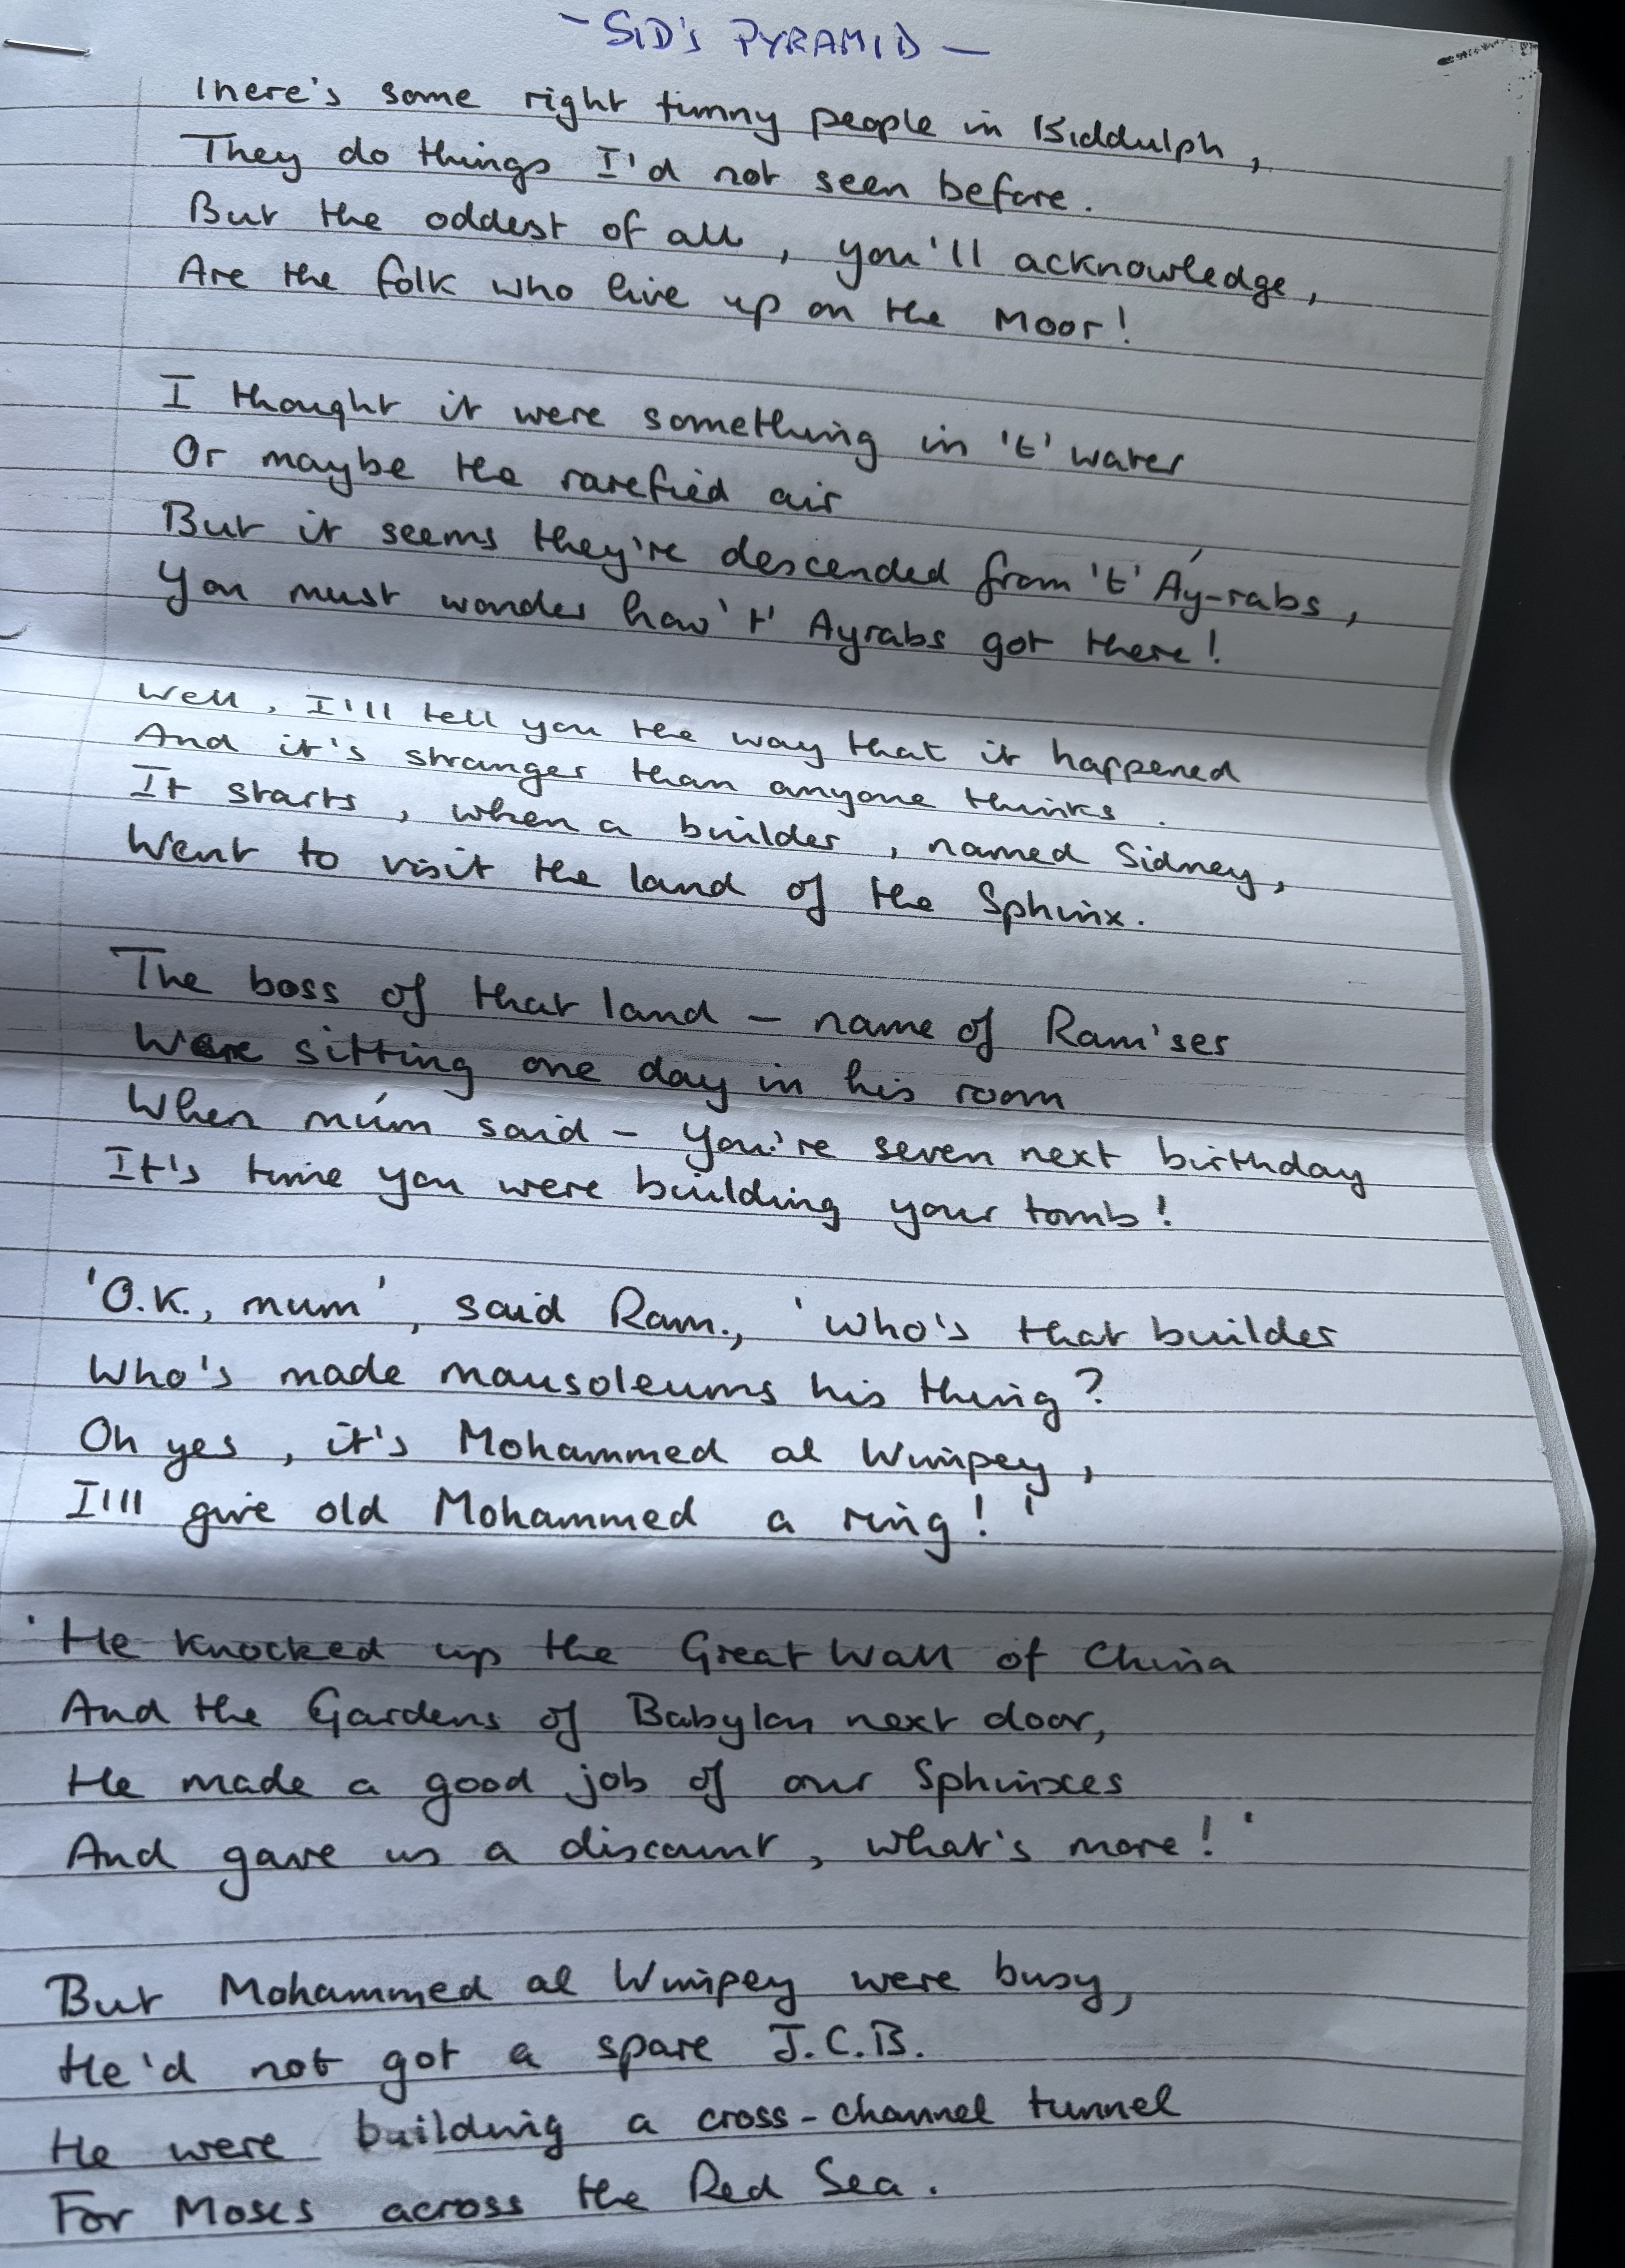 - SID'S PYRAMID -
There's some right funny people in Biddulph,
They do things I'd not seen before.
But the oddest of all, you'll acknowledge,
Are the folk who live up on the Moor!
I thought it were something in 't' water
Or maybe the rarefied air
But it seems they're descended from 't' Áy-rabs,
You must wonder how 't' Ayrabs got there!
Well, I'll tell you the way that it happened
And it's stranger than anyone thinks.
It starts, when a builder, named Sidney,
Went to visit the land of the Sphinx.
The boss of that land - name of Ram'ses
Were sitting one day in his room
When múm said - you're seven next birthday
It's time you were building your tomb!
'O.K., mum', said Ram., 'who's that builder
Who's made mausoleums his thing?
Oh yes, it's Mohammed al Wimpey,
I'll give old Mohammed a ring!'
'He knocked up the Great Wall of China
And the Gardens of Babylon next door,
He made a good job of our Sphinxes
And gave us a discount, what's more!'
But Mohammed al Wimpey were busy,
He'd not got a spare J.C.B.
He were building a cross-channel tunnel
For Moses across the Red Sea.